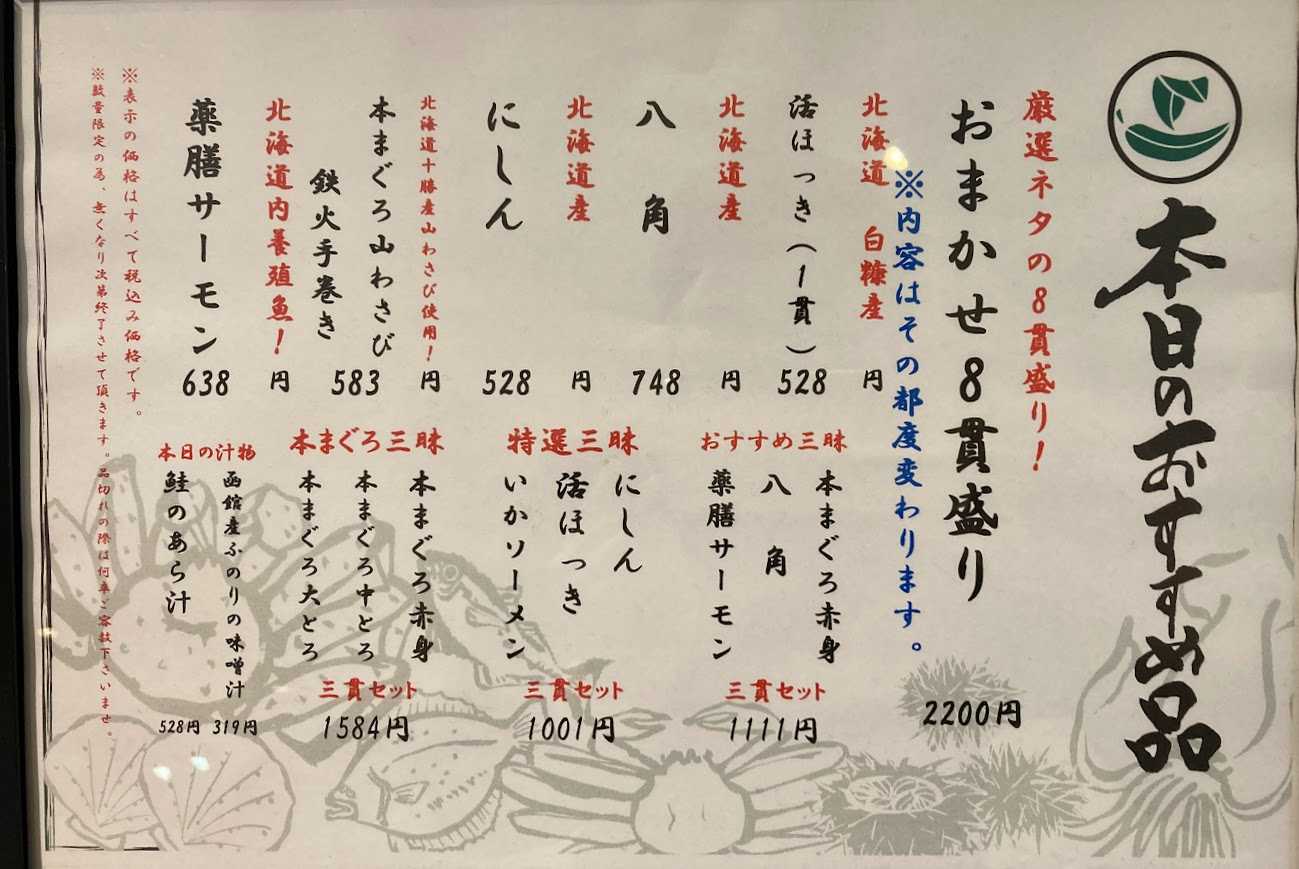 本日のおすすめ品
厳選ネタの8貫盛り！
おまかせ8貫盛り
2200円
※内容はその都度変わります。
北海道 白糠産
活ほっき（1貫）
528円
北海道産
八角
748円
北海道産
にしん
528円
北海道十勝産山わさび使用！
本まぐろ山わさび
鉄火手巻き
583円
北海道内養殖魚！
薬膳サーモン
638円
おすすめ三昧
本まぐろ赤身
八角
薬膳サーモン
三貫セット
1111円
特選三昧
にしん
活ほっき
いかソーメン
三貫セット
1001円
本まぐろ三昧
本まぐろ赤身
本まぐろ中とろ
本まぐろ大とろ
三貫セット
1584円
本日の汁物
函館産ふのりの味噌汁
319円
鮭のあら汁
528円
※表示の価格はすべて税込み価格です。
※数量限定の為、無くなり次第終了させて頂きます。品切れの際は何卒ご容赦下さいませ。